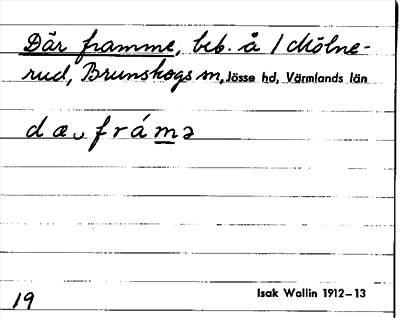 Där framme, beb. å 1 Mölne-
rud, Brunskogs sn, Jösse hd, Värmlands län
d æ ᴗ f r á m ə
Isak Wallin 1912–13
19